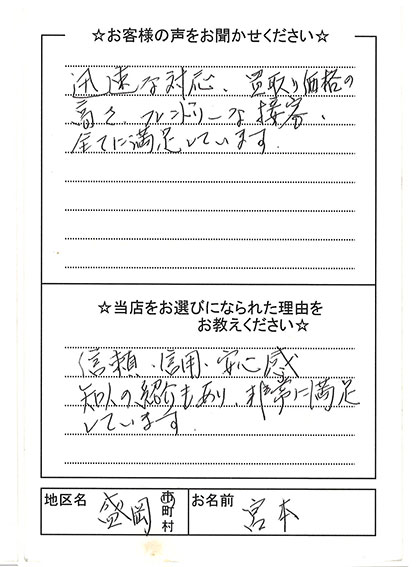 ☆お客様の声をお聞かせください☆
迅速な対応、買取り価格の
高さ、フレンドリーな接客、
全てに満足しています。
☆当店をお選びになられた理由を
お教えください☆
信頼、信用、安心感
知人の紹介もあり、非常に満足
しています。
地区名 盛岡 市町村 お名前 宮本